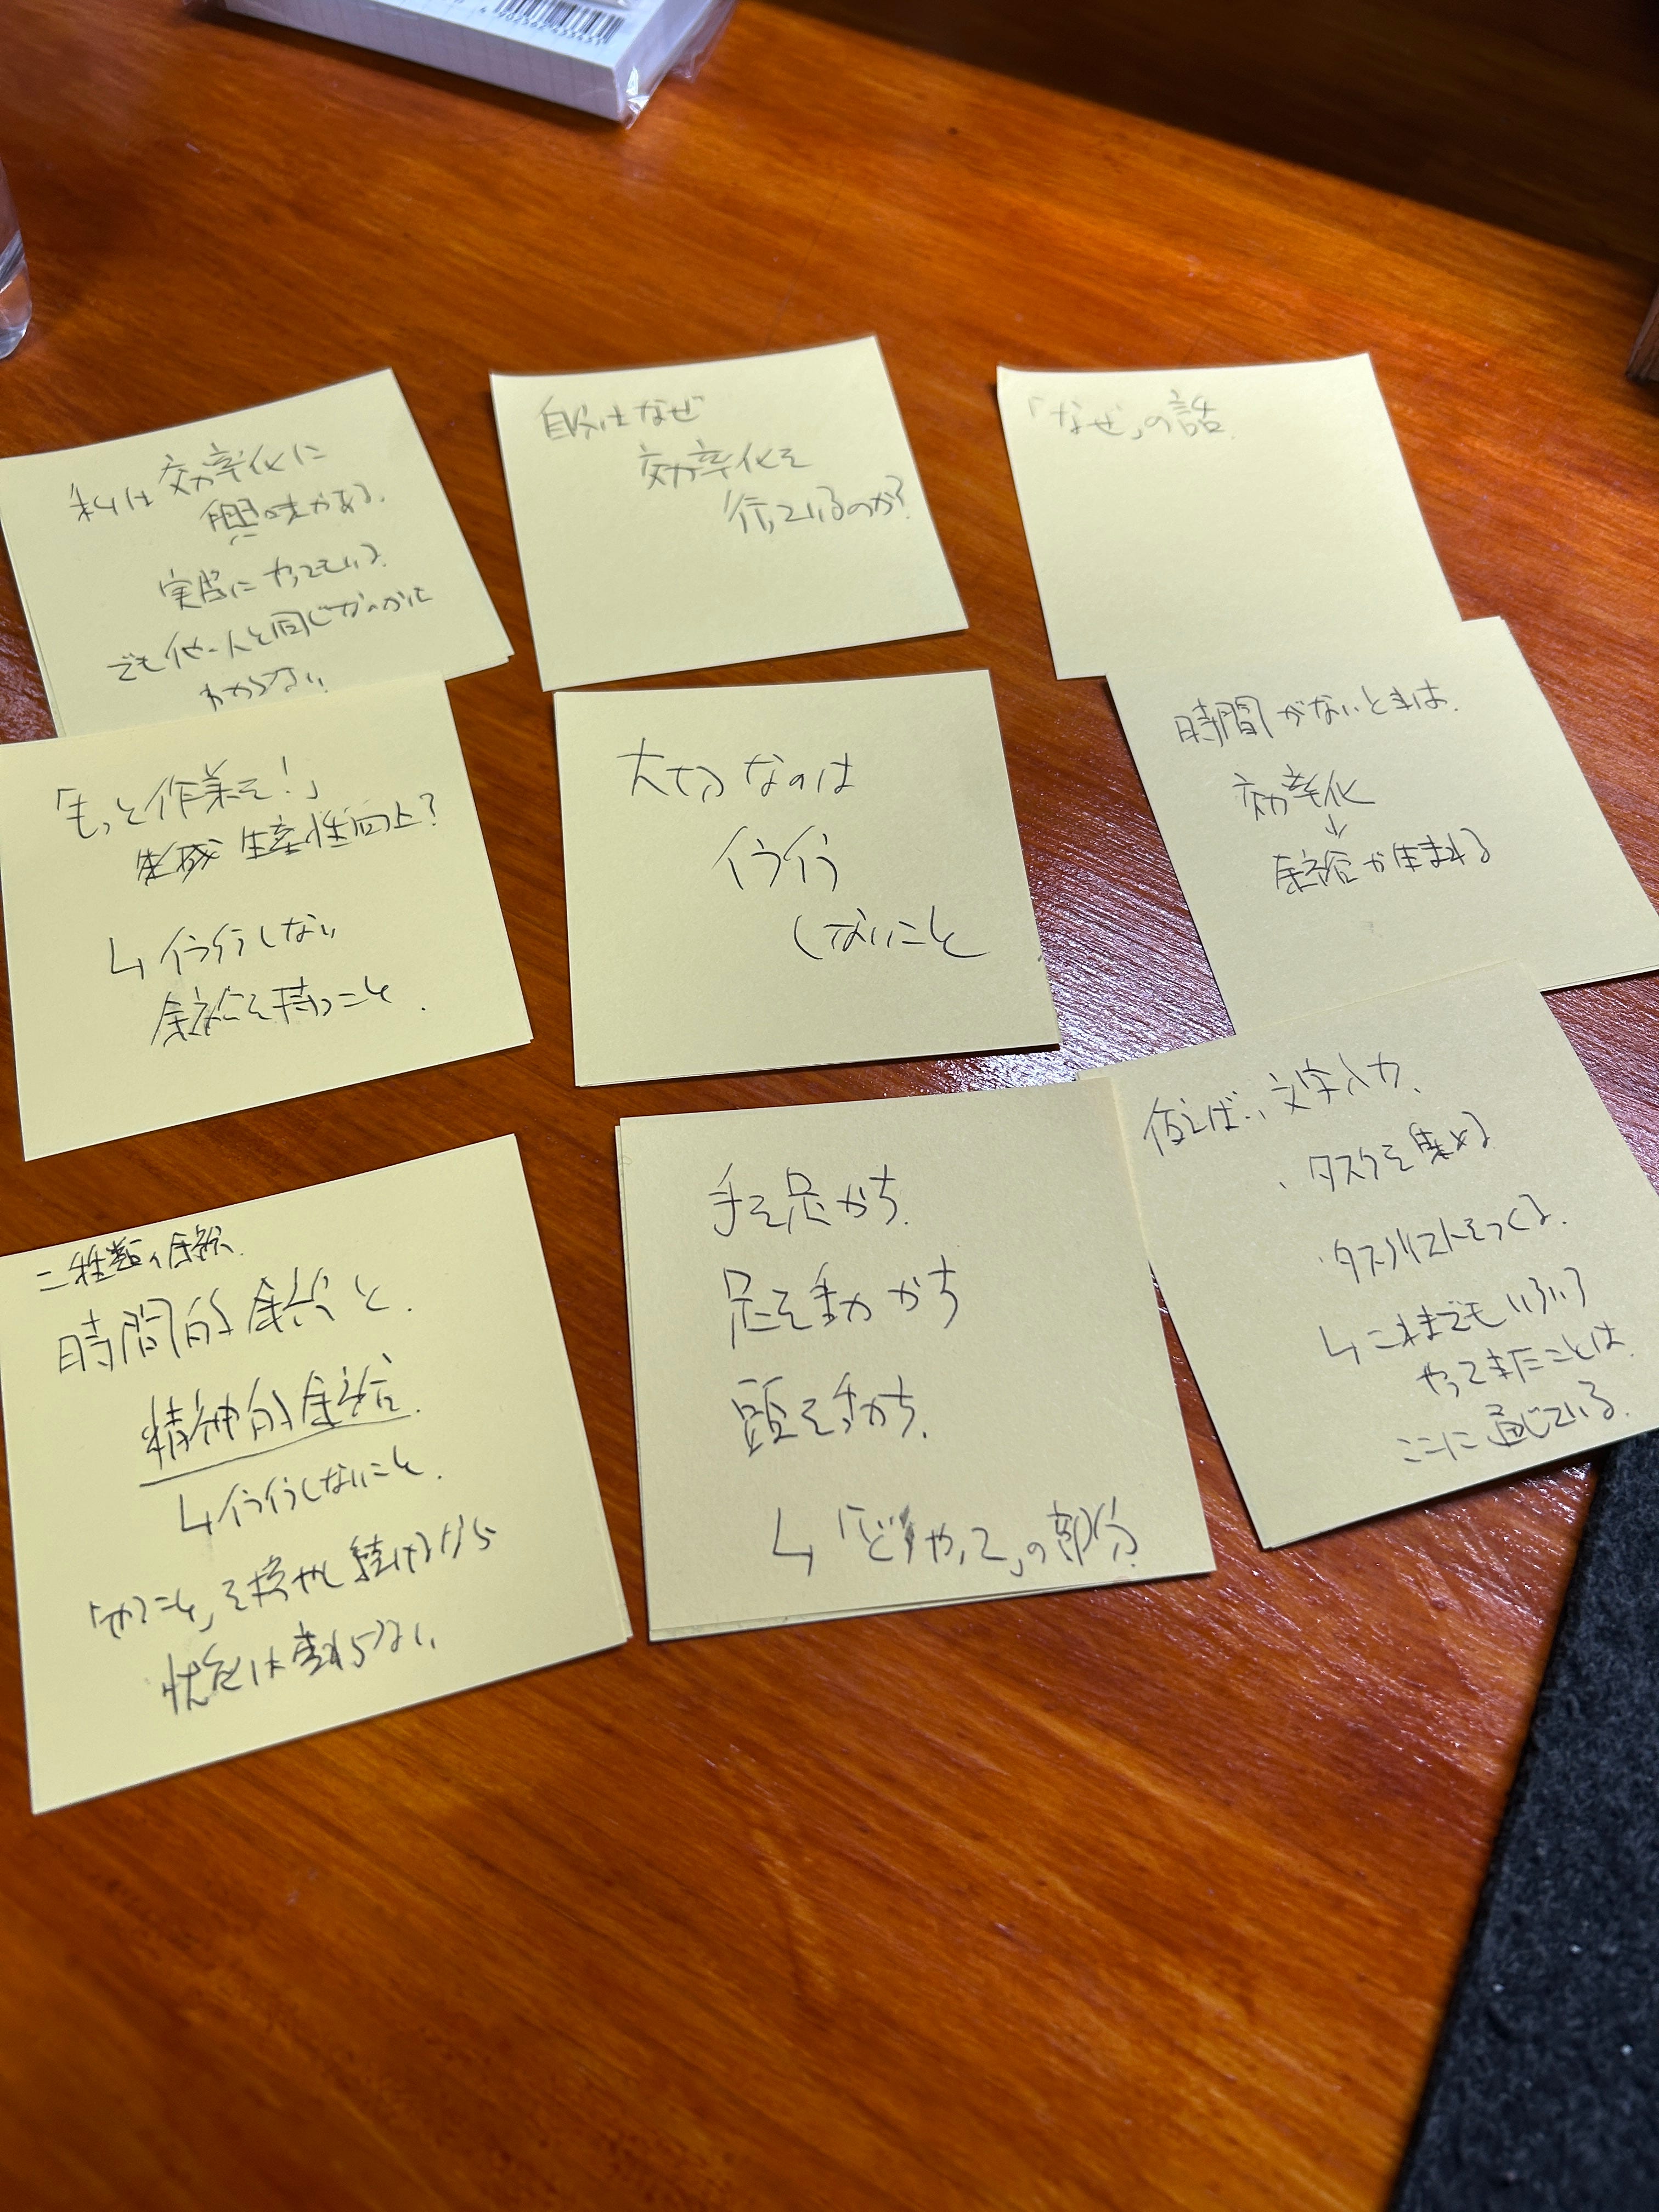 私は効率化に
興味がある.
実際にやってもいる.
でも他の人と同じかわかは
わからない
自分はなぜ
効率化を
行っているのか?
「なぜ」の話.
「もっと作業を!」
生産性向上?
↳イライラしない
余裕を持つこと.
大切なのは
イライラ
しないこと
時間がないときは.
効率化
↓
余裕が生まれる
二種類の余裕.
時間的余裕と.
精神的余裕.
↳イライラしないこと.
「やること」を増やし続けるなら
状態は変わらない
手を
足を動かす
頭を動かす.
↳「どうやって」の部分
例えば、文字入力.
・タスクを集める
・タスクリストをつくる.
↳これまでもいろいろ
やってきたことは.
ここに通じている.